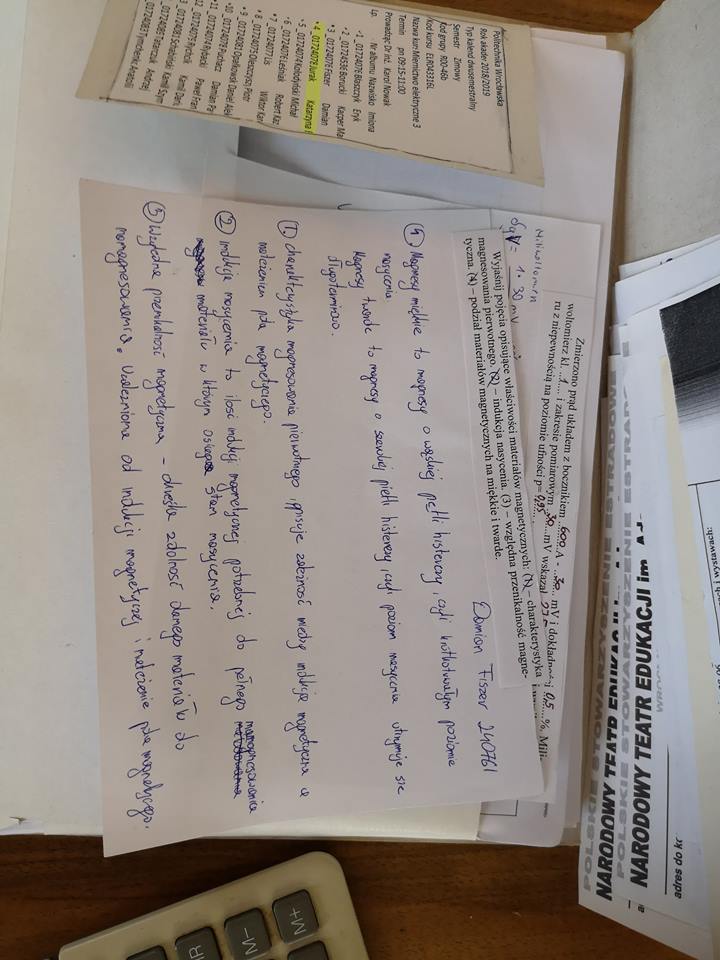 adres do kr
NARODOWY TEATR EDUKACJI im. Ad
POLSKIE STOWARZYSZENIE ESTRADOWE
NARODOWY TEATR EDUKACJI
POLSKIE STOWARZYSZENIE ESTRAD
Zmierzono prąd układem z bocznikiem 600 A - 30 mV i dokładności 0,5 %. Mili-
woltomierz kl. 1 i zakresie pomiarowym 30 mV wskazał
ru z niepewnością na poziomie ufności p= 0,95
Miliwoltomierz
1 · 30 mV
Wyjaśnij pojęcia opisujące właściwości materiałów magnetycznych: (1) – charakterystyka
magnesowania pierwotnego. (2) – indukcja nasycenia. (3) – względna przenikalność magne-
tyczna. (4) – podział materiałów magnetycznych na miękkie i twarde.
Damian Fiszer 240761
4. Magnesy miękkie to magnesy o wąskiej pętli histerezy, czyli krótkotrwałym poziomie
nasycenia.
Magnesy twarde to magnesy o szerokiej pietli histerezy, czyli poziom nasycenia utrzymuje sie
długoterminowo.
1. charakterystyka magnesowania pierwotnego, opisuje zależność miedzy indukcją magnetyczna a
natężeniem pola magnetycznego.
2 indukcja nasycenia to ilość indukcji magnetycznej potrzebnej do pełnego namagnesowania
materiału w którym osiąga stan nasycenia.
3 Względna przenikalność magnetyczna – określa zdolność danego materiału do
namagnesowania. Uzależniona od indukcji magnetyczej i natężenie pola magnetycznego.
Politechnika Wrocławska
Rok akader 2018/2019
Typ kalend dwusemestralny
Semestr Zimowy
Kod grupy R00-46b
Kod kursu ELR043316L
Nazwa kur: Miernictwo elektryczne 3
Termin pn 09:15-11:00
Prowadząc Dr inż. Karol Nowak
Lp. Nr albumu Nazwisko Imiona
1 _01724076 Błaszczyk Eryk
2 _01724536 Borucki Kacper Ma
3 _0172076 Fiszer Damian
4 _01724078 Jurak Katarzyna
5 _01724074 Kołodyński Michał
6 _01724076 Leśniak Robert Kaz
7 _01724077 Lis Wiktor Kar
8 _01724075 Oleszczyszy Piotr
9 _01724081 Opałkowsk Daniel Alek
10 _01724078 Puchacz Damian Pa
11 _01724074 Rybacki Paweł Fran
12 _01724075 Rychcik Kamil Dariu
01724081 Schabiński Kamil Szym
Tatarczuk Andrzej
01724083 Tymchenko Anatolii
M+
M−
MR